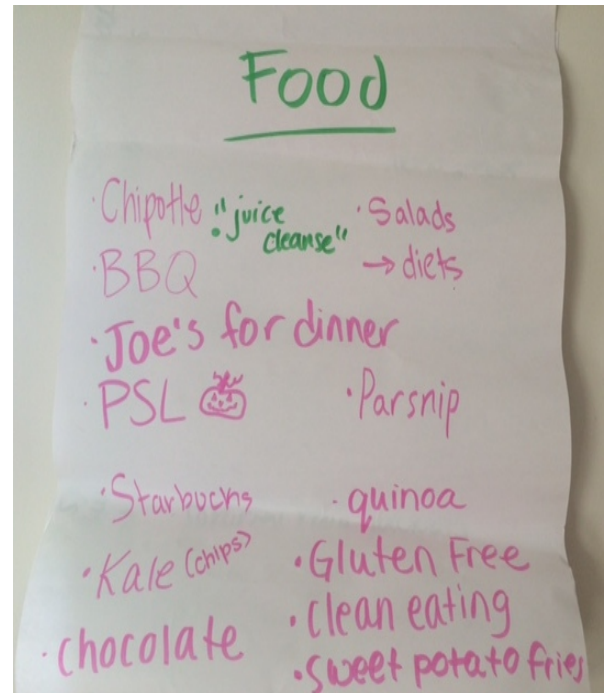 Food
· Chipotle
· "juice
cleanse"
· Salads
→ diets
· BBQ
· Joe's for dinner
· PSL
· Parsnip
· Starbucks
· quinoa
· Kale (chips)
· Gluten Free
· Clean eating
· chocolate
· sweet potato fries